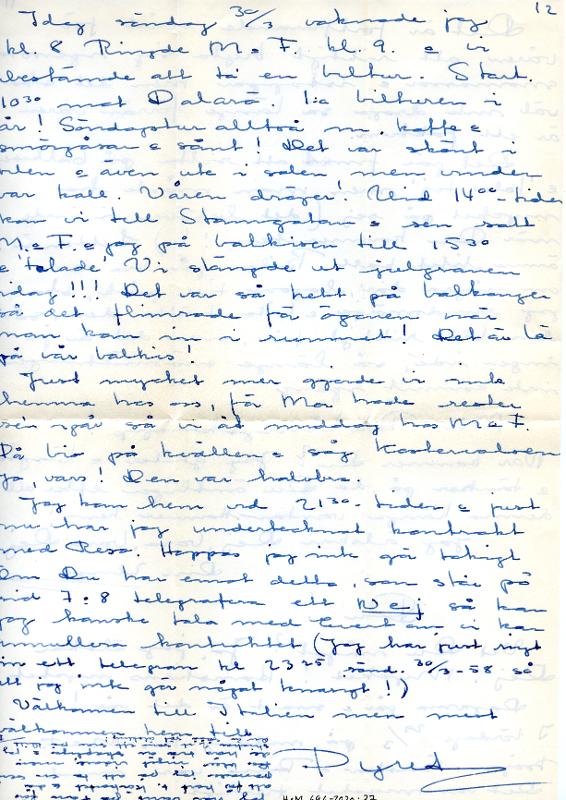 12
Idag söndag 30/3 vaknade jag
kl. 8 Ringde M o F. kl. 9. o vi
bestämde att ta en biltur. Start.
10 30 mot Dalarö. 1:a bilturen i
år! Söndagstur alltså m. kaffe o
smörgåsar o sånt! Det var skönt i
bilen o även ute i solen men vinden
var kall. Våren dröjer! Vid 14 00-tiden
kom vi till Stamgatan o sen satt
M. o F. o jag på balkisen till 15 30
o 'solade' Vi slängde ut julgranen
idag!!! Det var så hett på balkongen
så det flimrade för ögonen när
man kom in i rummet! Det är bra
på vår balkis!
Just mycket mer gjorde vi inte
hemma hos oss, för Mor hade
sen igår så vi åt middag hos M o F.
Då bio på kvällen o såg
ja, vars! Den var halvbra.
Jag kom hem vid 21 30-tiden o just
nu har jag undertecknat kontrakt
med Reso. Hoppas jag inte gör tokigt
Om Du har emot detta, som står på
sid 7 o 8 telegrafera ett Nej så kan
jag kanske tala med Evert om vi kan
annullera kontraktet (Jag har just ringt
in ett telegram kl 23 25 sönd. 30/3-58 så
att jag inte gör något knasigt!)
Välkommen till Italien men mest
välkommen hem till